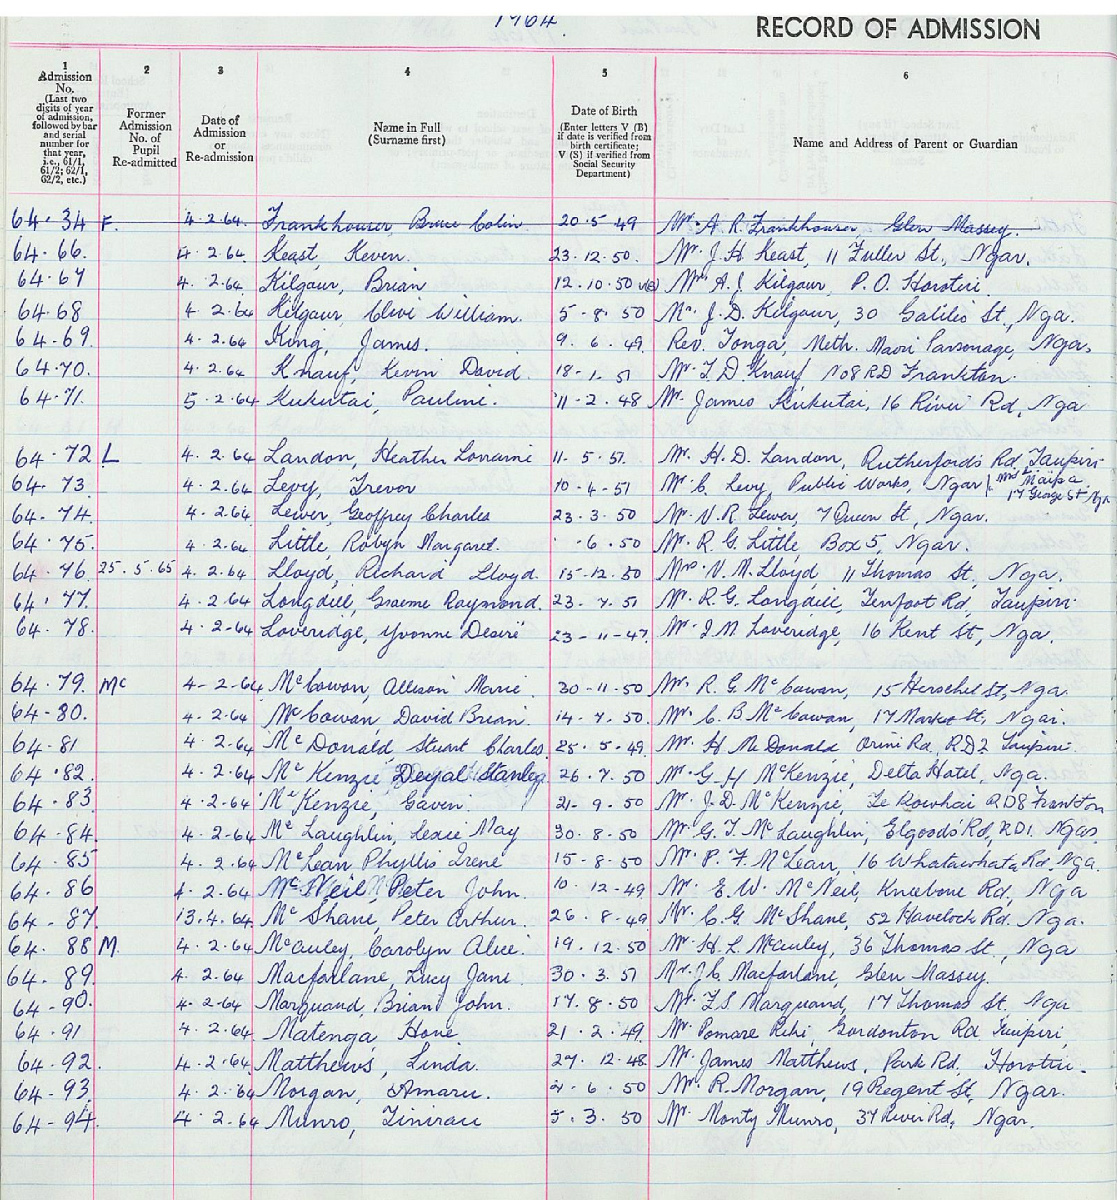 1964
RECORD OF ADMISSION
1 2 3 4 5 6
Admission No. (Last two digits of year of admission, followed by bar and serial number for that year, i.e., 61/1, 61/2; 62/1, 62/2, etc.)
Former Admission No. of Pupil Re-admitted
Date of Admission or Re-admission
Name in Full (Surname first)
Date of Birth (Enter letters V (B) if date is verified from birth certificate; V (S) if verified from Social Security Department)
Name and Address of Parent or Guardian
64·34 F. 4.2.64 Frankhouser, Bruce Colin 20.5.49 Mr. A. R. Frankhouser, Glen Massey.
64·66. 4.2.64. Keast, Keven. 23.12.50. Mr. J. H. Keast, 11 Fuller St., Ngar.
64·67 4.2.64 Kilgour, Brian 12.10.50 V(B) Mr A. J. Kilgour, P.O. Horotiu
64·68 4.2.64 Kilgour, Clive William. 5-8.50 Mr. J. D. Kilgour, 30 Galileo St., Nga.
64-69. 4.2.64 King, James. 9.6.49. Rev. Tonga, Meth. Maori Parsonage, Nga.
64-70. 4.2.64 Knauf, Kevin David. 18-1.51 Mr. T. D Knauf No 8 RD Frankton.
64-71. 5.2.64 Kukutai, Pauline. 11-2.48 Mr. James Kukutai, 16 River Rd, Nga
64-72 L 4.2.64 Landon, Heather Lorraine 11.5.51. Mr. H. D. Landon, Rutherfords Rd, Taupiri
64-73 4.2.64 Levy, Trevor 10-4-51 Mr. C. Levy, Public Works, Ngar. Mrs Maipa 17 George St Nga.
64-74. 4.2.64 Lewer, Geoffrey Charles 23.3.50 Mr. V. R. Lewer, 7 Queen St, Ngar.
64-75. 4.2.64 Little, Robyn Margaret. -6.50 Mr. R. G. Little, Box 5, Ngar.
64.76. 25.5.65 4.2.64 Lloyd, Richard Lloyd. 15-12.50 Mrs. V. M. Lloyd, 11 Thomas St, Nga.
64.77. 4.2.64 Longdill, Graeme Raymond. 23.7.51 Mr. R. G. Longdill, Tenfoot Rd, Taupiri
64.78. 4.2-64 Loveridge, Yvonne Desiré 23-11-47. Mr. J. M. Loveridge, 16 Kent St, Nga.
64.79. Mc 4-2-64 McCowan, Allison Marie. 30-11.50 Mr. R. G. McCowan, 15 Herschel St, Nga.
64-80. 4.2.64. McCowan, David Brian. 14.7.50. Mr. C. B McCowan, 17 Marks St, Ngar.
64-81 4.2.64 McDonald Stuart Charles 25.5.49. Mr. H McDonald Orini Rd, R.D.2 Taupiri.
64.82. 4.2.64 McKenzie, Stanley 26.7.50 Mr. G. H McKenzie, Delta Hotel, Nga.
64-83 4.2.64 McKenzie, Gaven 21-9.50 Mr. J. D. McKenzie, Te Kowhai R.D8 Frankton
64-84. 4.2.64 McLaughlin, Lexie May 30.8.50 Mr. G. T. McLaughlin, Elgoods Rd, R.D1. Ngar.
64-85 4.2.64 McLean Phyllis Irene 15-8.50 Mr. P. F. McLean, 16 Whatawhata Rd. Nga.
64-86 4.2.64 McNeil, Peter John. 10.12.49 Mr. E. W. McNeil, Kneebone Rd, Nga
64-87. 13.4.64 McShane, Peter Arthur. 26.8.49 Mr. C. G. McShane, 52 Havelock Rd. Nga.
64.88 M. 4.2.64 McAuley, Carolyn Alice. 19.12.50 Mr. H. L. McAuley, 36 Thomas St., Nga
64.89. 4.2.64 Macfarlane, Lucy Jane 30.3.51 Mr. J. C. Macfarlane, Glen Massey.
64-90. 4.2.64 Marquand, Brian John. 17.8.50 Mr. F. S Marquand, 17 Thomas St. Nga
64-91 4.2.64 Matenga, Hone. 21.2.49. Mr. Pomare Rihi, Gordonton Rd Taupiri,
64-92. 4.2.64 Matthews, Linda. 27.12.48. Mr. James Matthews, Park Rd, Horotiu.
64-93. 4.2.64 Morgan, Amaru. 4.6.50 Mr. R. Morgan, 19 Regent St, Ngar.
64-94. 4.2.64 Munro, Tinirau 5.3.50 Mr. Monty Munro, 37 River Rd, Ngar.